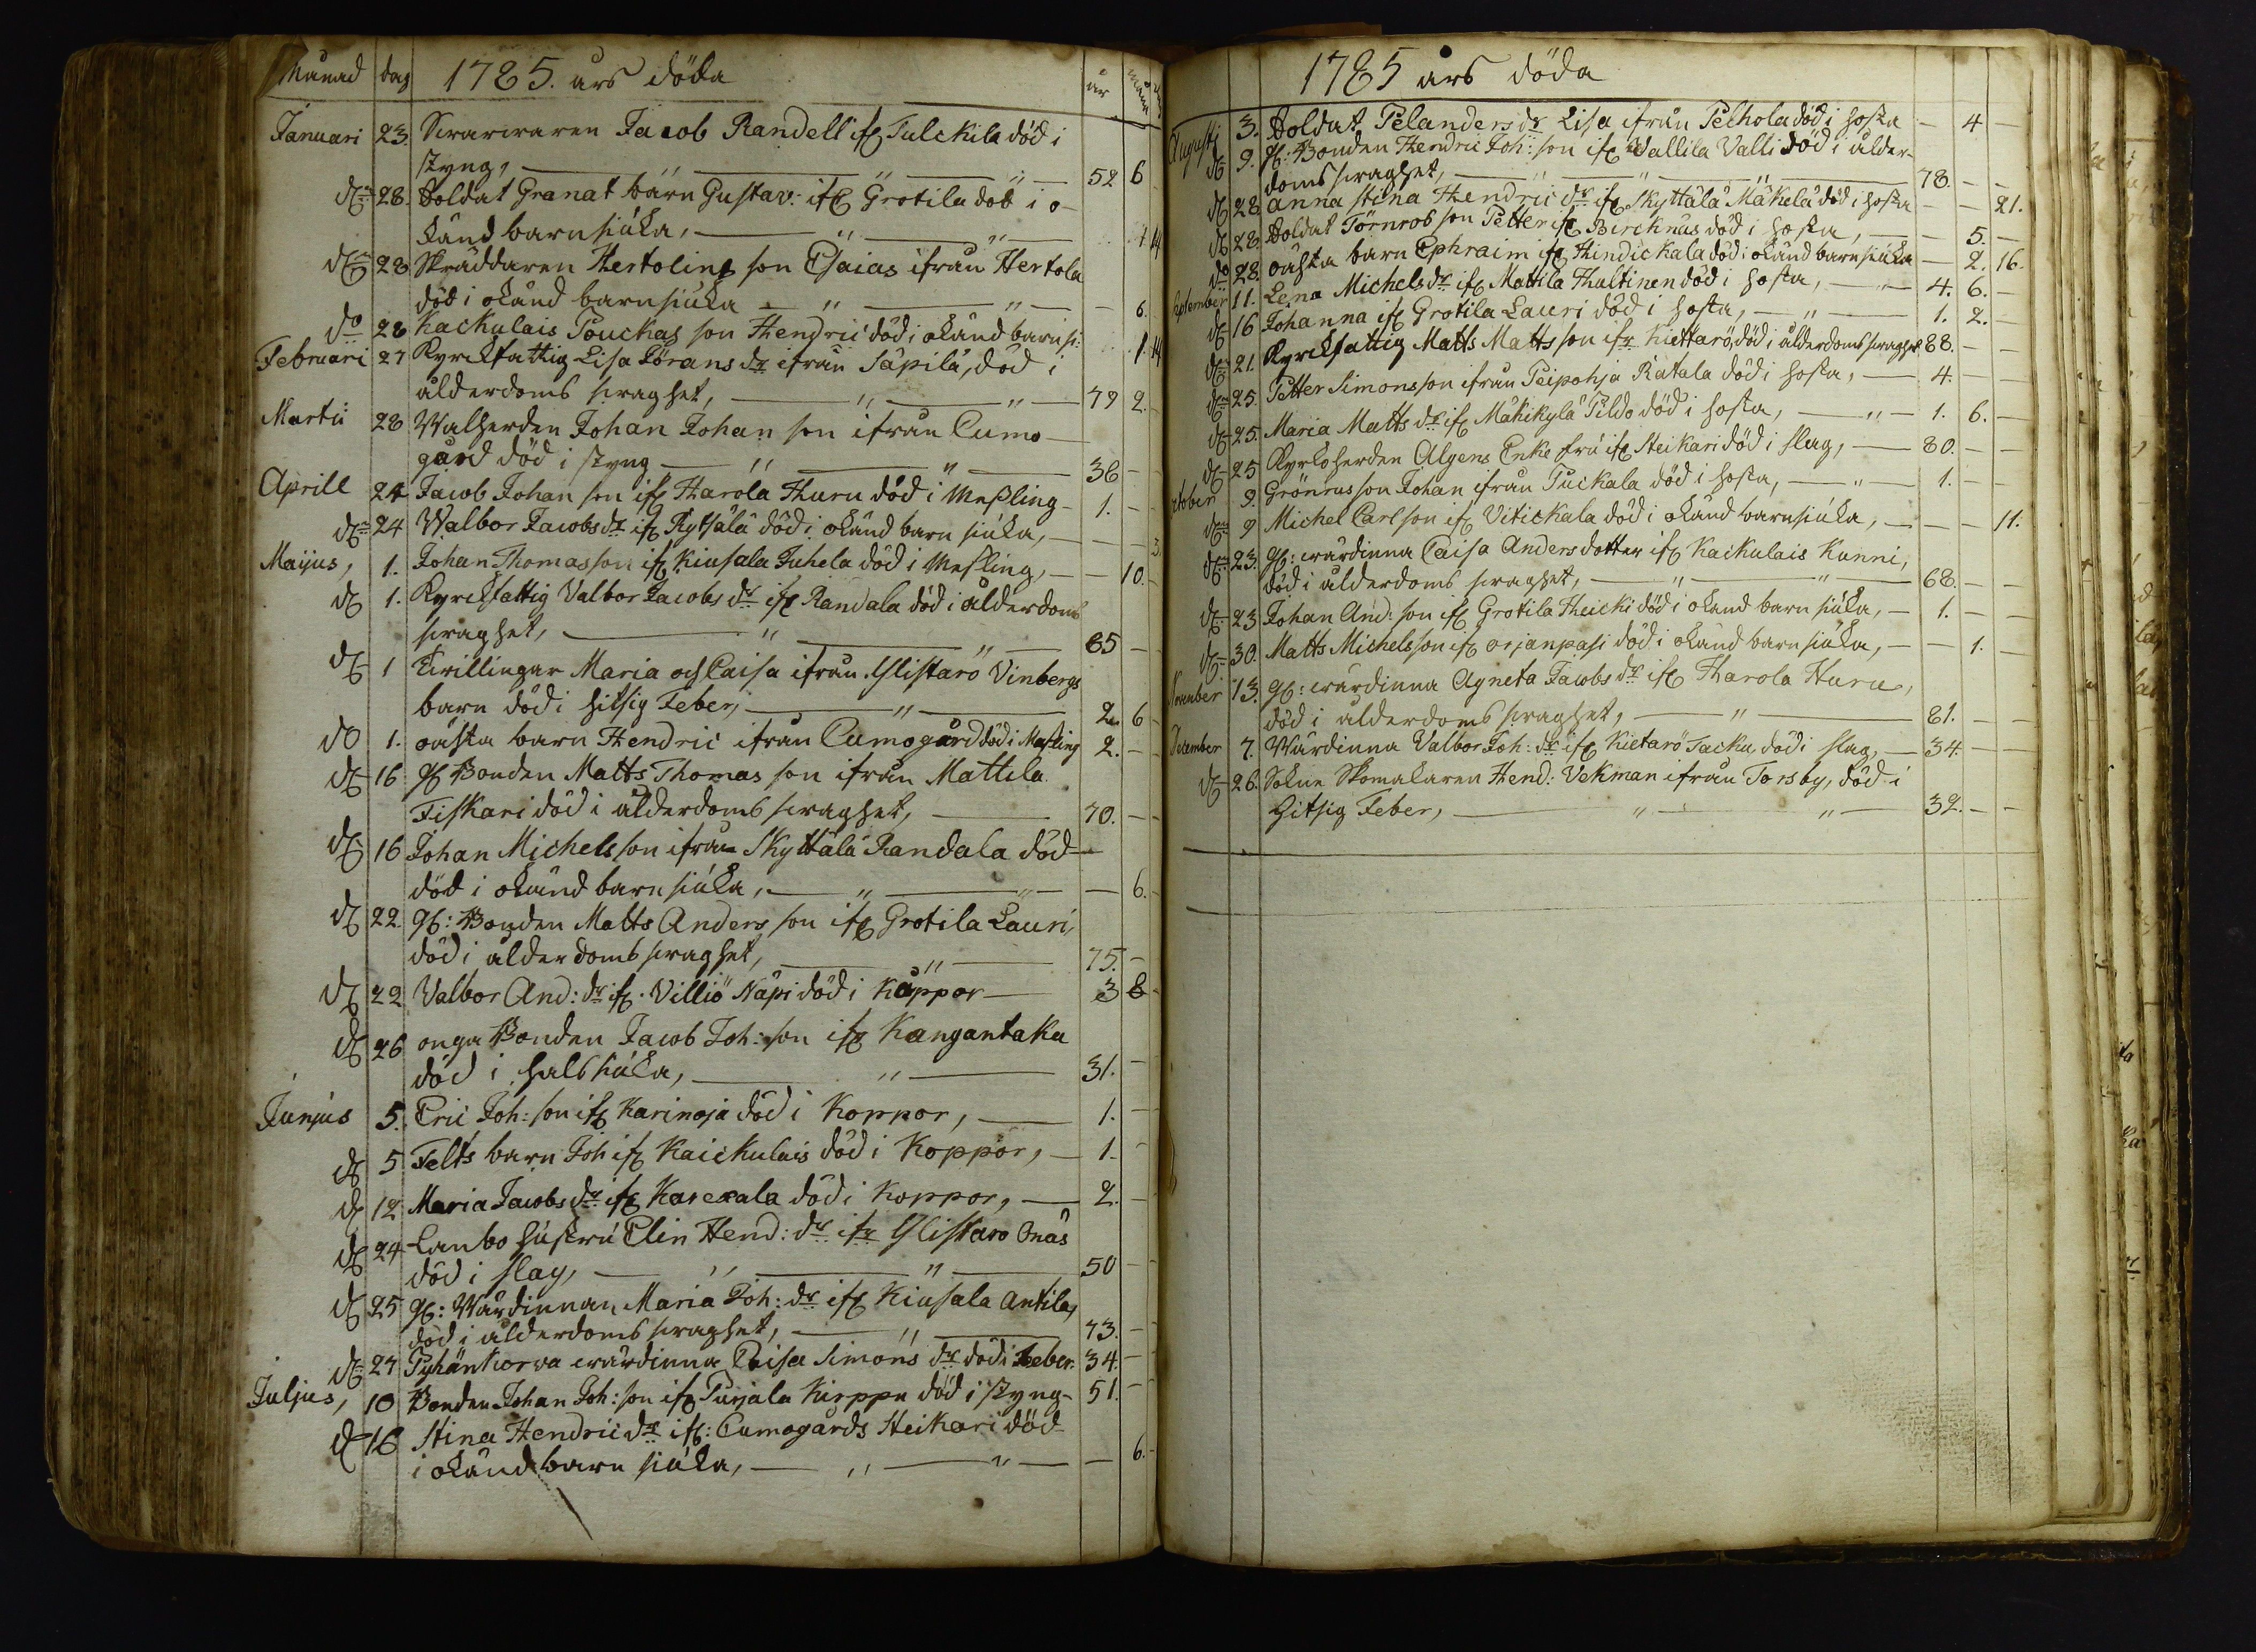 Månad dag 1785. års döda år mån dag
Januari 23. Swarwaren Jacob Randell ifr Tulckila död i
styng, 52 6
do 28. Soldat Granat barn Gustav: ifr Grotila död i o-
känd barnsiúka, 1 14
do 28 Skräddaren Hertolins son Esaias ifrån Hertola
död i okänd barnsiuka 6.
do 28 Kackulais Pouckas son Hendric död i okänd barnsi: 1. 14
Februari 27 Kyrckfattig Lisa Jörans dr ifrån Säpilä, död i
ålderdoms swaghet, 79 2.
Martii 28 Walherden Johan Johan son ifrån Cumo-
gård död i styng 36
Aprill 24 Jacob Johan son ifr Harola Huru död i Messling 1.
do 24 Walbor Jacobs dr ifr Pyttälä död i okänd barn siúka, 3.
Maijus, 1. Johan Thomasson ifr Kiusala Juhela död i Messling, 10.
do 1. Kyrckfattig Valbor Jacobs dr ifr Randala död i ålderdoms
swaghet, 85
do 1 Twillingar Maria och Caisa ifrån Ylistaro Vinbergs
barn död i hitsig Feber, 2 6
do 1. oächta barn Hendric ifrån Cumogård död i Messling 2.
do 16 gl Bonden Matts Thomas son ifrån Mattila
Fiskari död i ålderdoms swaghet, 70.
do 16 Johan Michels son ifrån Skyttälä Randala död
död i okänd barn siúka, 6.
do 22. gl: Bonden Matts Anders son ifr Grotila Lauri,
död i ålderdoms swaghet, 75.
do 22 Valbor And: dr ifr. Villiö Näpi död i Kåppor 3 8
do 26 onga Bonden Jacob Joh: son ifr Kangantaka
död i halssiúka, 31.
Junjus 5. Eric Joh: son ifr Karinoja död i Koppor, 1.
do 5 Felts barn Joh ifr Kaickulais död i Koppor, 1.
do 12 Maria Jacobs dr ifr Karexala död i Koppor, 2.
do 24 Lanbo hústrú Elin Hend: dr ifr Ylistaro Onäs
död i slag, 50
do 25 gl: Wärdinnan Maria Joh: dr ifr Kiusala Antila,
död i ålderdoms swaghet, 73.
do 27 Pyhänkorva wärdinna Caisa Simons dr död i Feber. 34.
Juljus, 10 Bonden Johan Joh: son ifr Purjala Kirppu död i styng 51.
do 16 Stina Hendric dr ifr: Cumogårds Steikari död
i okänd barn siúka, 6.
1785 års döda
Augusti 3. Soldat Pelanders dr Lisa ifrån Pelhola död i hosta 4
do 9. gl: Bonden Hendric Joh: son ifr Wallila Valli död i ålder-
doms swaghet, 78.
do 28. anna stina Hendric dr ifr Skyttälä Mäkelä död i hosta 21.
do 28. Soldat Törnros son Petter ifr Bircknäs död i hosta, 5.
do 28. oächta barn Ephraim ifr Hindickala död i okänd barnsiúka 2. 16.
September 11. Lena Michels dr ifr Mattila Hultinen död i hosta, 4. 6.
do 16 Johanna ifr Grotila Lauri död i hosta, 1. 2.
do 21. Kyrckfattig Matts Matts son ifr Kiettarö, död i ålderdoms swaghet 88.
do 25. Petter Simonsson ifrån Peipohja Ratala död i hosta, 4.
do 25. Maria Matts dr ifr Mähikylä Pildo död i hosta, 1. 6.
do 25 Kyrkoherden Algens Enke frú ifr Steikari död i slag, 80.
October 9. Grönrus son Johan ifrån Tuckala död i hosta, 1.
do 9 Michel Carl son ifr Vitickala död i okänd barnsiúka, 11.
do 23. gl: wärdinna Caisa Andersdotter ifr Kaickulais Kunni,
död i ålderdoms swaghet, 68.
do 23 Johan And: son ifr Grotila Heicki död i okänd barn siúka, 1.
do 30. Matts Michelsson ifr orjanpasi död i okänd barn siúka, 1.
November 13. gl: wärdinna Agneta Jacobs dr ifr Harola Huru,
död i ålderdoms swaghet, 81.
December 7. Wärdinna Valbor Joh: dr ifr Kietarö Jacku död i slag, 34.
do 26. Sokne Skomakaren Hend: Vekman ifrån Torsby, död i
hitsig Feber, 32.